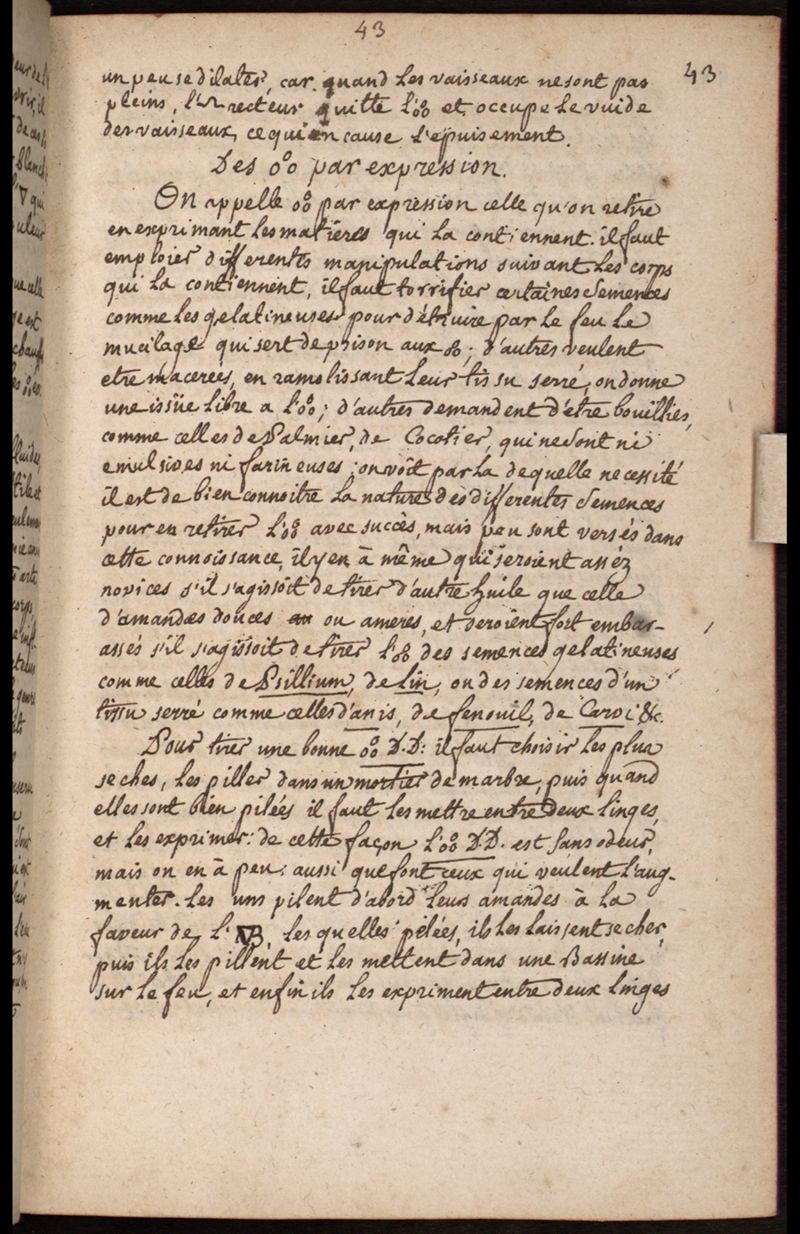 43
43
un peu se dilater, car quand les vaisseaux ne sont pas
pleins, l' recteur quitte l'o°o et occupe le vuide
des vaisseaux, ce qui en cause l'epuisement.
Des o°o par expression.
On appelle o°o par expression celle qu'on retire
en exprimant les matières qui la contiennent. il faut
emploier differentes manipulations suivant les corps
qui la contiennent, il faut torrifier certaines semences
comme les gelatineuses pour détruire par le feu le
mucilage qui sert de prison aux o°o; d'autres veulent
etre macerées, en ramolissant leur tissu serré, on donne
une issüe libre a l'o°o; d'autres demandent d'etre bouillies,
comme celles de Palmier, de Cocotier, qui ne sont ni
emulsives ni farineuses; on voit par la de quelle necessité
il est de bien connoitre la nature des differentes semences
pour en retirer l'o°o avec succès, mais peu sont versés dans
cette connoissance, il y en à même qui seroient asséz
novices s'il s'agissoit de tirer d'autre huile que celle
d'amandes douces ou ameres, et seroient fort embar-
assés s'il s'agissoit de tirer l'o°o des semences gelatineuses
comme celles de Psillium, de Lin, ou des semences d'un
tissu serré comme celles d'anis, de fenouil, de Carvi &c.
Pour tirer une bonne o°o D.D: il faut choisir les plus
seches, les piller dans un mortier de marbre, puis quand
elles sont bien pilées il faut les mettre entre deux linges,
et les exprimer: de cette façon l'o°o D.D. est sans odeur,
mais on en à peu: aussi que font ceux qui veulent l'aug-
menter. Les uns pilent d'abord leurs amandes à la
faveur de l' ▽B, les quelles pélées, ils les laissent secher,
puis ils les pillent et les mettent dans une Bassine
sur le feu, et enfin ils les expriment entre deux linges